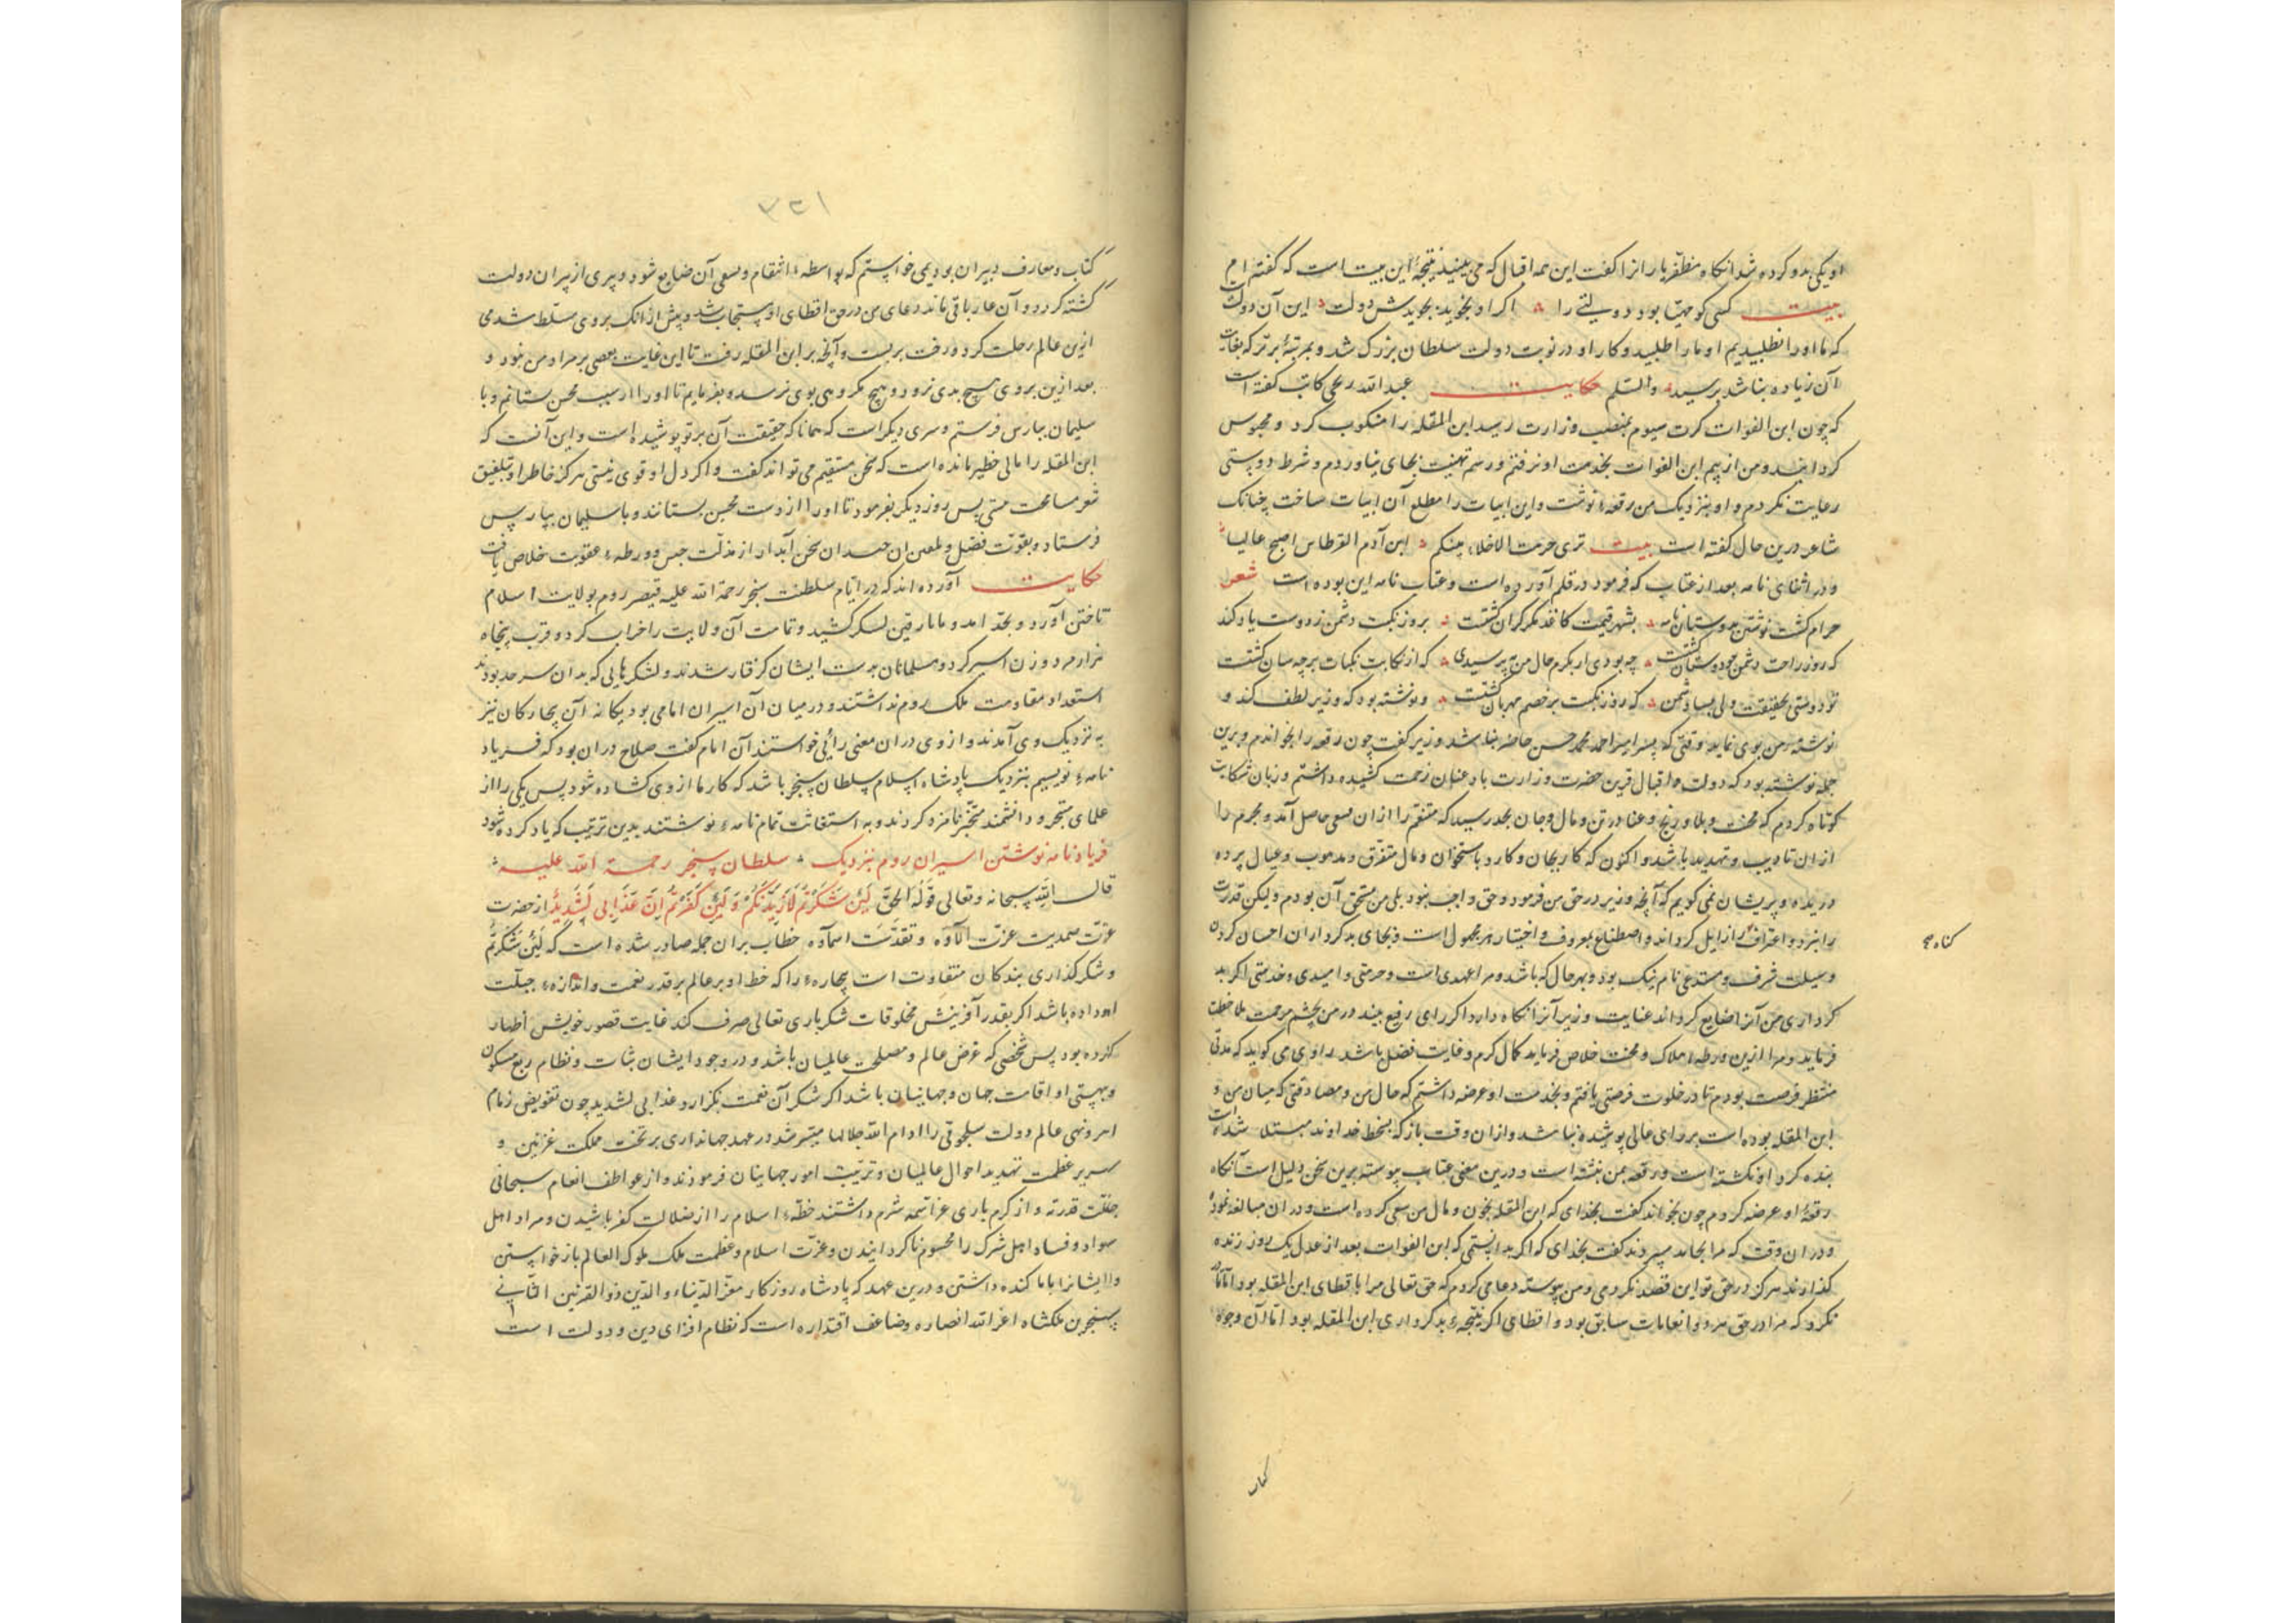 او یکی بدو کرده شد آنکاه مظفر یاران را کفت این همه اقبال که می بینید نتیجهٔ این بیت است که کفته ام
بیت کسی کو مهیا بود دولتی را اکر او نجوید بجویدش دولت این آن دولت
که ما او را نطلبیدیم او ما را طلبید و کار او در نوبت دولت سلطان بزرک شد و بمرتبهٔ برتر که بغایت
آن زیاده نباشد برسید والسلم حکایت عبد الله کاتب کفته است
که چون ابن الفوات کرت سیوم بمنصب وزارت رسید ابن المقله را منکوب کرد و محبوس
کردانید و من از بیم ابن الفوات بخدمت او نرفتم و رسم تهنیت بجای نیاوردم و شرط دوستی
رعایت نکردم و او بنزدیک من رقعهٔ نوشت و این ابیات را مطلع آن ابیات ساخت چنانک
شاعر درین حال کفته است بیت تری حرمت الاخلاء بینکم ابن آدم القرطاس اصبح عالیا
و در اثنای نامه بعد از عتاب که فرمود در قلم آورده است و عتاب نامه این بوده است شعر
حرام کشت نوشتن بدوستان نامه بشهر قیمت کاغذ مکر کران کشت بروز نکبت دشمن ز دوست یاد کند
که روز راحت دشمن چو دوستان کشت چه بودی ار بکرم حال من بپرسیدی که از نکایت نکبات بر چه سان کشت
تو دوستی بحقیقت ولی بسا دشمن که روز نکبت بر خصم مهربان کشت و نوشته بود که وزیر لطف کند و
نوشتهٔ من بوی نماید وقتی که پسر امیر احمد محمد حسن حاضر نباشد وزیر کفت چون رقعه را بخواندم و برین
جمله نوشته بود که دولت و اقبال قرین حضرت وزارت باد عنان زحمت کشیده داشتم و زبان شکایت
کوتاه کردم که محنت و بلا و رنج و عنا در تن و مال و جان بحد رسید که منتقم را ازان سعی حاصل آمد و مجرم را
ازان تادیب و تهدید باشد و اکنون که کار بجان و کارد باستخوان و مال متفرق و منهوب و عیال پرده
دریده و پریشان نمی کویم که آنچه وزیر در حق من فرمود و حق واجب نبود بلی من مستحق آن بودم ولیکن قدرت
را بنزد و اعتراف زایل کرداند و اصطناع معروف و اختیار مر مجبول است و بجای بد کرداران احسان کردن
کناه صح
وسیلت شرف و مستدعی نام نیک بود و بهر حال که باشد و مرا عهدی است و حرمتی و امیدی و خدمتی اکر بد
کرداری من آنرا ضایع کرداند عنایت وزیر آنرا نکاه دارد اکر رای رفیع بیند در من بچشم مرحمت ملاحظت
فرماید و مرا ازین ورطهٔ هلاک و محنت خلاص فرماید کمال کرم و غایت فضل باشد راوی می کوید که مدتی
منتظر فرصت بودم تا در خلوت فرصتی یافتم و بخدمت او عرضه داشتم که حال من و مصادقتی که میان من و
ابن المقله بوده است بر رای عالی پوشیده نباشد و ازان وقت باز که بسخط خداوند مبتلا شده است
بنده کرد او نکشته است و رقعه بمن نبشته است و درین معنی عتاب پیوسته برین سخن دلیل است آنکاه
رقعهٔ او عرضه کردم چون بخواند کفت بخدای که ابن المقله بخون و مال من سعی کرده است و دران مبالغه نموده
و دران وقت که مرا بحامد سپردند کفت بخدای که اکر بدانستی که ابن الفوات بعد از عدل یک روز زنده
کذارند هرکز در حق تو این قصد نکردمی و من پیوسته دعا می کردم که حق تعالی مرا باقطای ابن المقله بود
نکرد که مرا در حق مردو انعامات سابق بود و اقطای اکر نتیجهٔ بد کرداری ابن المقله بود اما آن وجوه
کتاب
۳۲۱
کتاب و معارف دبیران بود نمی خواستم که بواسطهٔ انتقام و سعی آن ضایع شود و پیری از پیران دولت
کشته کردد و آن عار باقی ماند دعای من در حق اقطای او مستجاب شد و پیش از آنک بر وی مسلط شدمی
ازین عالم رحلت کرد و رفت بربست و آنچه بر ابن المقله رفت تا این غایت بعضی بر مراد من نبود و
بعد ازین بر وی هیچ بدی نرود و هیچ مکروهی بوی نرسد و بفرمایم تا او را از سبب محسن بستانم و با
سلیمان بپارس فرستم و سری دیکر است که همانا که حقیقت آن بر تو پوشیده است و این آنست که
ابن المقله را مالی خطیر مانده است که سخن مستقیم می تواند کفت و اکر دل او قوی نیستی هرکز خاطر او بتلفیق
شعر مسامحت پس روز دیکر بفرمود تا او را از دست محسن بستانند و با سلیمان بپارس
فرستاد و بقوت فضل و لمعان سخن آبدار از مذلت حبس و ورطهٔ عقوبت خلاص یافت
حکایت آورده اند که در ایام سلطنت سنجر رحمة الله علیه قیصر روم بولایت اسلام
تاختن آورد و بحد امد و مافارقین لشکر کشید و تمامت آن ولایت را خراب کرد و قرب پنجاه
هزار مرد و زن اسیر کرد و مسلمانان بدست ایشان کرفتار شدند و لشکرهایی که بدان سرحد بودند
استعداد مقاومت ملک روم نداشتند و درمیان آن اسیران امامی بود یکانه آن بیچارکان نیز
به نزدیک وی آمدند و از وی دران معنی رائی خواستند آن امام کفت صلاح دران بود که فریاد
نامهٔ نویسیم بنزدیک پادشاه اسلام سلطان سنجر باشد که کار ما از وی کشاده شود پس یکی را از
علمای متبحر و دانشمند نامزد کردند و به استغاثت تمام نامهٔ نوشتند بدین ترتیب که یاد کرده شود
فریاد نامه نوشتن اسیران روم بنزدیک سلطان سنجر رحمة الله علیه
قال الله سبحانه وتعالی قوله الحق لَئِنْ شَكَرْتُمْ لَأَزِيدَنَّكُمْ وَلَئِنْ كَفَرْتُمْ إِنَّ عَذَابِي لَشَدِيدٌ از حضرت
عزت صمدیت عزت آلاؤه و تقدست اسماؤه خطاب بران جمله صادر شده است که لَئِنْ شَكَرْتُمْ
و شکرکذاری بندکان متفاوت است بیچارهٔ را که حظ او بر عالم بر قدر نعمت و اندازهٔ جبلت
او داده باشد اکر بقدر آفرینش مخلوقات شکر باری تعالی صرف کند غایت قصور خویش اظهار
کرده بود پس شخصی که غرض عالم و مصلحت عالمیان باشد و در وجود ایشان ثبات و نظام ربع مسکون
و بهستی او اقامت جهان و جهانیان باشد اکر شکر آن نعمت نکزارد عذابی لشدید چون تفویض زمام
امر و نهی عالم دولت سلجوقی را ادام الله جلالها میسر شد در عهد جهانداری بر تخت مملکت غزنین و
سریر عظمت تمهید احوال عالمیان و ترتیب امور جهانیان فرمودند و از عواطف انعام سبحانی
جلت قدرته و از کرم باری عز اسمه شرم داشتند خطهٔ اسلام را از ضلالت کفر باشیدن و مراد اهل
سواد و فساد اهل شرک را محسوم ناکردانیدن و عزت اسلام و عظمت ملک ملوک العالم باز خواستن
و ایشانرا داشتن و درین عهد که پادشاه روزکار معز الدنیا والدین ذوالقرنین الثانی
سنجر بن ملکشاه اعز الله انصاره و ضاعف اقتداره است که نظام افزای دین و دولت است